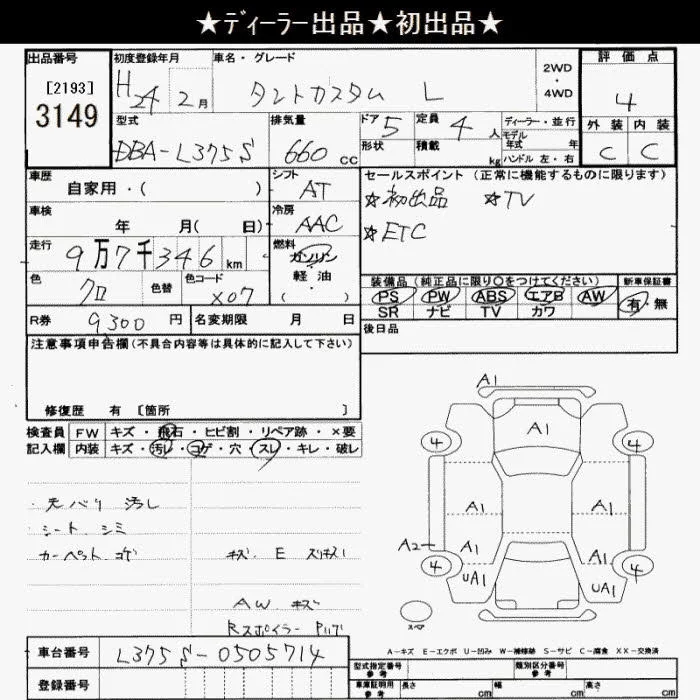 ★ディーラー出品★初出品★
出品番号 初度登録年月 車名・グレード 2WD ・ 4WD 評価点
[2193]
3149
H24 2月 タントカスタム L 4
型式 排気量 ドア 5 定員 4人 ディーラー・並行 外装 内装
DBA-L375S 660cc 形状 積載 kg モデル年式 年 C C
ハンドル 左・右
車歴 シフト セールスポイント (正常に機能するものに限ります)
自家用・( ) AT ☆初出品 ☆TV
車検 冷房 ☆ETC
年 月( 日) AAC
走行 9万7千346km 燃料 ガソリン
軽油
( )
色 色替 色コード 装備品 (純正品に限り〇をつけてください) 新車保証書
クロ X07 PS PW ABS エアB AW 有・無
SR ナビ TV カワ
R券 9,300円 名変期限 月 日 後日品
注意事項申告欄(不具合内容等は具体的に記入して下さい)
修復歴 有 [箇所 ]
検査員 FW キズ・飛石・ヒビ割・リペア跡・×要
記入欄 内装 キズ・汚レ・コゲ・穴・スレ・キレ・破レ
・天バリ 汚レ
・シート シミ
・カーペット コゲ キズ、E
AW キズ
Rスポイラー
A1
4 A1 4
A1 A1
A2 A1 A1
4 4
UA1 UA1
スペア
A-キズ E-エクボ U-凹み W-補修跡 S-サビ C-腐食 XX-交換済
車台番号 L375S-0505714
型式指定番号 参考 類別区分番号 参考
登録番号 車庫証明用 参考 長さ cm 幅 cm 高さ cm